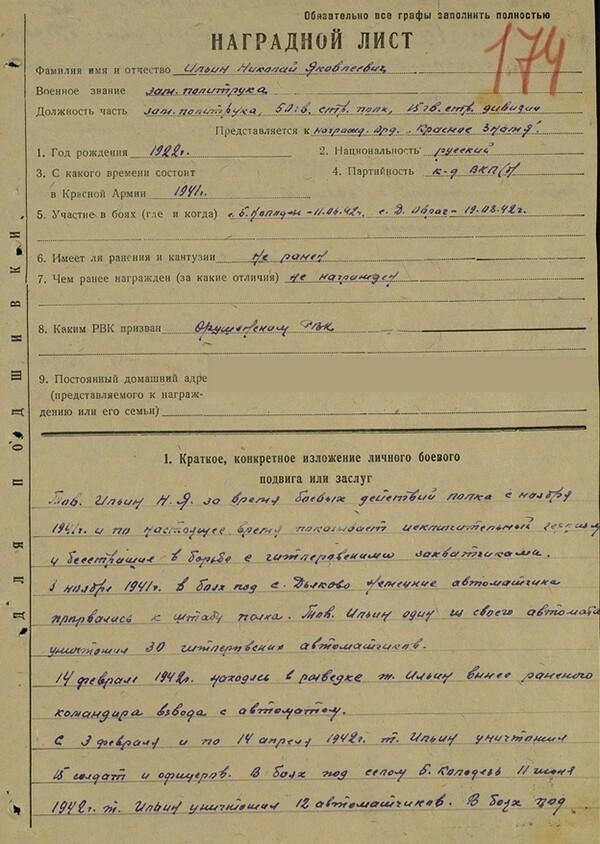 Обязательно все графы заполнить полностью
НАГРАДНОЙ ЛИСТ
174
Фамилия имя и отчество Ильин Николай Яковлевич
Военное звание зам. политрука
Должность часть зам. политрука, 50 гв. стр. полк, 15 гв. стр. дивизии
Представляется к награжд. орд. "Красное Знамя"
1. Год рождения 1922 г. 2. Национальность русский
3. С какого времени состоит 4. Партийность к-д ВКП(б)
в Красной Армии 1941 г.
5. Участие в боях (где и когда) 42 г. с. Д. 19.08.42 г.
6. Имеет ли ранения и кантузии не ранен
7. Чем ранее награжден (за какие отличия) не награжден
8. Каким РВК призван РВК
9. Постоянный домашний адре
(представляемого к награж-
дению или его семьи)
Для подшивки
1. Краткое, конкретное изложение личного боевого
подвига или заслуг
Тов. Ильин Н. Я. за время боевых действий полка с ноября
1941 г. и по настоящее время показывает исключительный героизм
и бесстрашие в борьбе с гитлеровскими захватчиками.
ноябре 1941 г. в боях под с. Дьяково немецкие автоматчики
прорвались к штабу полка. Тов. Ильин один из своего автомата
уничтожил 30 гитлеровских автоматчиков.
14 февраля 1942 г. находясь в разведке т. Ильин вынес раненого
командира взвода с автоматом.
С 3 февраля и по 14 апреля 1942 г. т. Ильин уничтожил
15 солдат и офицеров. В боях под селом Б. Колодезь 11 июня
1942 г. т. Ильин уничтожил 12 автоматчиков. В боях под